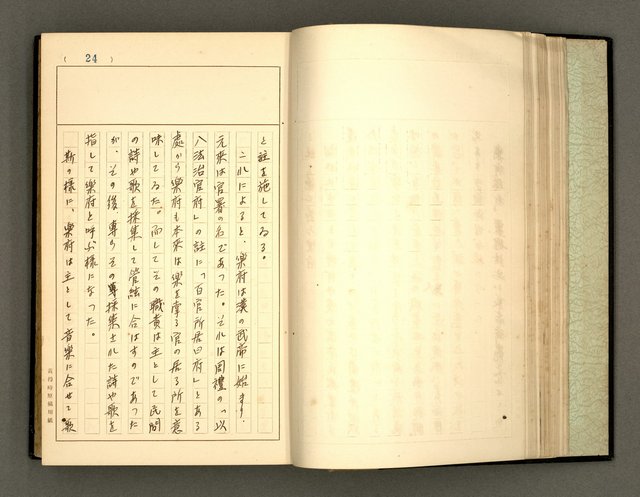 ( 24 )
と註を施してゐる。
これによると、樂府は漢の武帝に始まり、
元來は官署の名であつた。それは周禮の「以
八法治官府」の註に「百官所居曰府」とある
處から樂府も本來は樂を掌る官の居る所を意
味してゐた。而してその職責は主として民間
の詩や歌を採集して管絃に合はすのであつた
が、その後、專らその採集された詩や歌を
指して樂府と呼ぶ樣になつた。
斯の樣に、樂府は主として音樂に合せて歌
黃得時原稿用紙